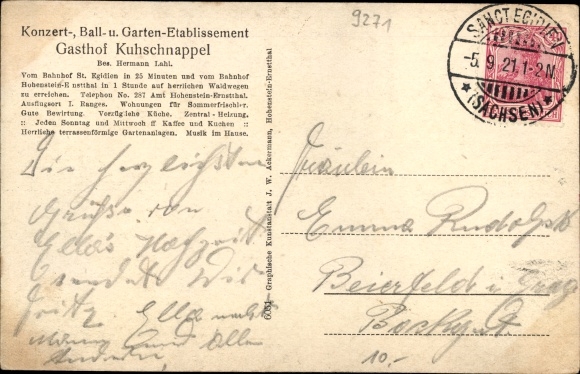 Konzert-, Ball- u. Garten-Etablissement
Gasthof Kuhschnappel
Bes. Hermann Lahl.
Vom Bahnhof St. Egidien in 25 Minuten und vom Bahnhof
Hohenstein-E nstthal in 1 Stunde auf herrlichen Waldwegen
zu erreichen. Telephon No. 287 Amt Hohenstein-Ernstthal.
Ausflugsort I. Ranges. Wohnungen für Sommerfrischler.
Gute Bewirtung. Vorzügliche Küche. Zentral-Heizung.
:: Jeden Sonntag und Mittwoch ff Kaffee und Kuchen ::
Herrliche terrassenförmige Gartenanlagen. Musik im Hause.
9271
SANCT EGIDIEN
-5.9.21.1-2N.
*(SACHSEN)*
Die herzlichsten
Grüße von
Ella's Hochzeit
sendet Dir
Fritz. Ella nebst
Mann und allen
Anderen
Graphische Kunstanstalt J. W. Ackermann, Hohenstein-Ernstthal
Fräulein
Emma Rudolph
Beierfeld i. Erzg.
10.-